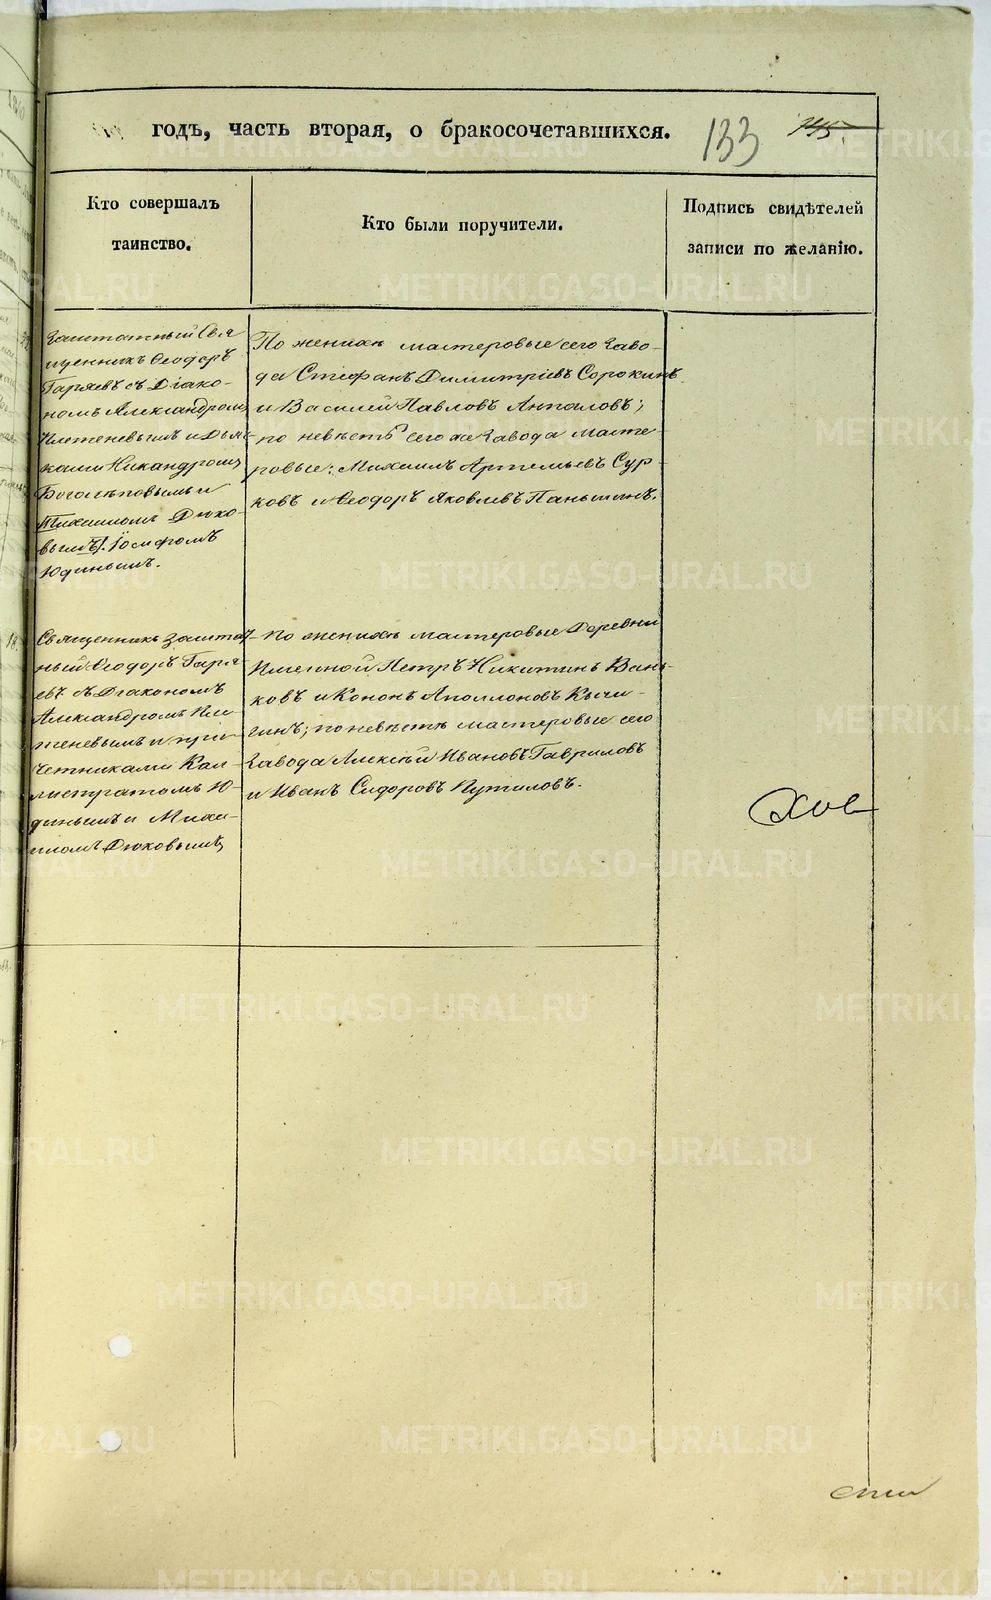 годъ, часть вторая, о бракосочетавшихся.
133
745.
Кто совершалъ
таинство.
Кто были поручители.
Подпись свидѣтелей
записи по желанію.
Заштатный Свя
щенникъ Ѳеодоръ
Гаряевъ съ Діако-
номъ Александромъ
Плетеневымъ и Дьяч-
ками Никандромъ
Боголѣповымъ и
Михаиломъ Дюко-
вымъ. Іосифомъ
Юдинымъ.
По женихѣ мастеровые сего Заво-
да Стефанъ Димитріевъ Сорокинъ
и Василей Павловъ Анпаловъ;
по невѣстѣ сего же Завода масте-
ровые: Михаилъ Артемьевъ Сур-
ковъ и Ѳеодоръ Яковлевъ Паньшинъ.
18.
Священникъ Заштат-
ный Ѳеодоръ Гаря-
евъ съ Діакономъ
Александромъ Пле-
теневымъ и при-
четниками Кал-
листратомъ Ю-
динымъ и Миха-
иломъ Дюковымъ,
По женихѣ мастеровые Деревни
Петръ Никитинъ Вань-
ковъ и Кононъ Аполлоновъ Кычи-
гинъ; по невѣстѣ мастеровые сего
Завода Алексѣй Ивановъ Гавриловъ
и Иванъ Сидоровъ Путиловъ.
METRIKI.GASO-URAL.RU